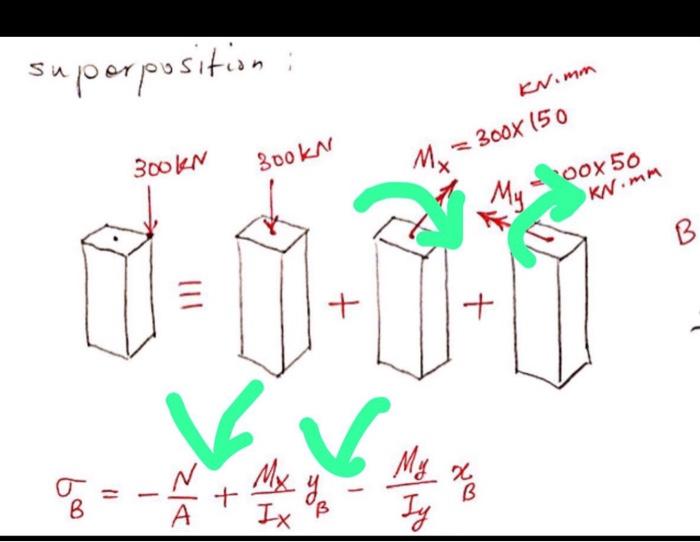 superposition :
KN.mm
300KN
300KN
Mx = 300X150
My = 00X50
KN.mm
B
≡ + +
σB = - N/A + Mx/Ix yB - My/Iy xB